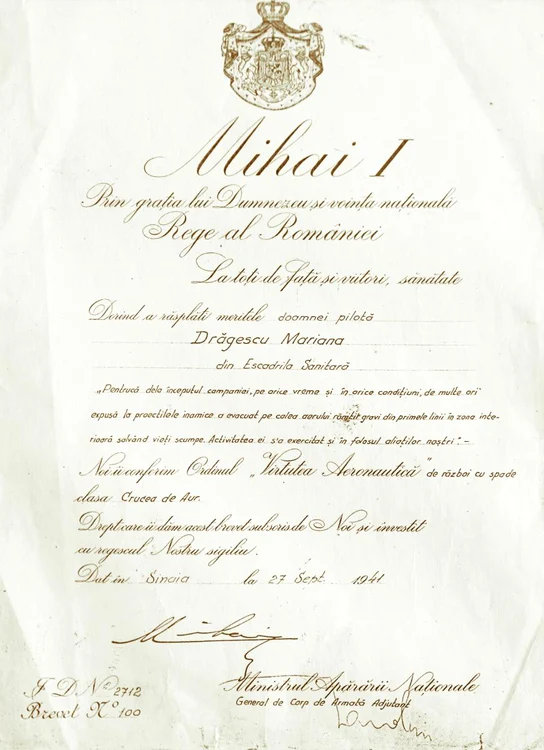 Mihai I
Prin grația lui Dumnezeu și voința națională
Rege al României
La toți de față și viitori, sănătate
Dorind a răsplăti meritele doamnei pilotă
Drăgescu Mariana
din Escadrila Sanitară
„Pentrucă dela începutul campaniei, pe orice vreme și în orice condițiuni, de multe ori
expusă la proectilele inamice a evacuat pe calea aerului răniții gravi din primele linii în zona inte-
rioară salvând vieți scumpe. Activitatea ei s'a exercitat și în folosul aliaților noștri". -
Noi îi conferim Ordinul „Virtutea Aeronautică" de război cu spade
clasa Crucea de Aur.
Drept care îi dăm acest brevet subscris de Noi și investit
cu regescul Nostru sigiliu.
Dat în Sinaia la 27 Sept. 1941
Mihai
Ministrul Apărării Naționale
General de Corp de Armată Adjutant
I. D. No 2712
Brevet No 100